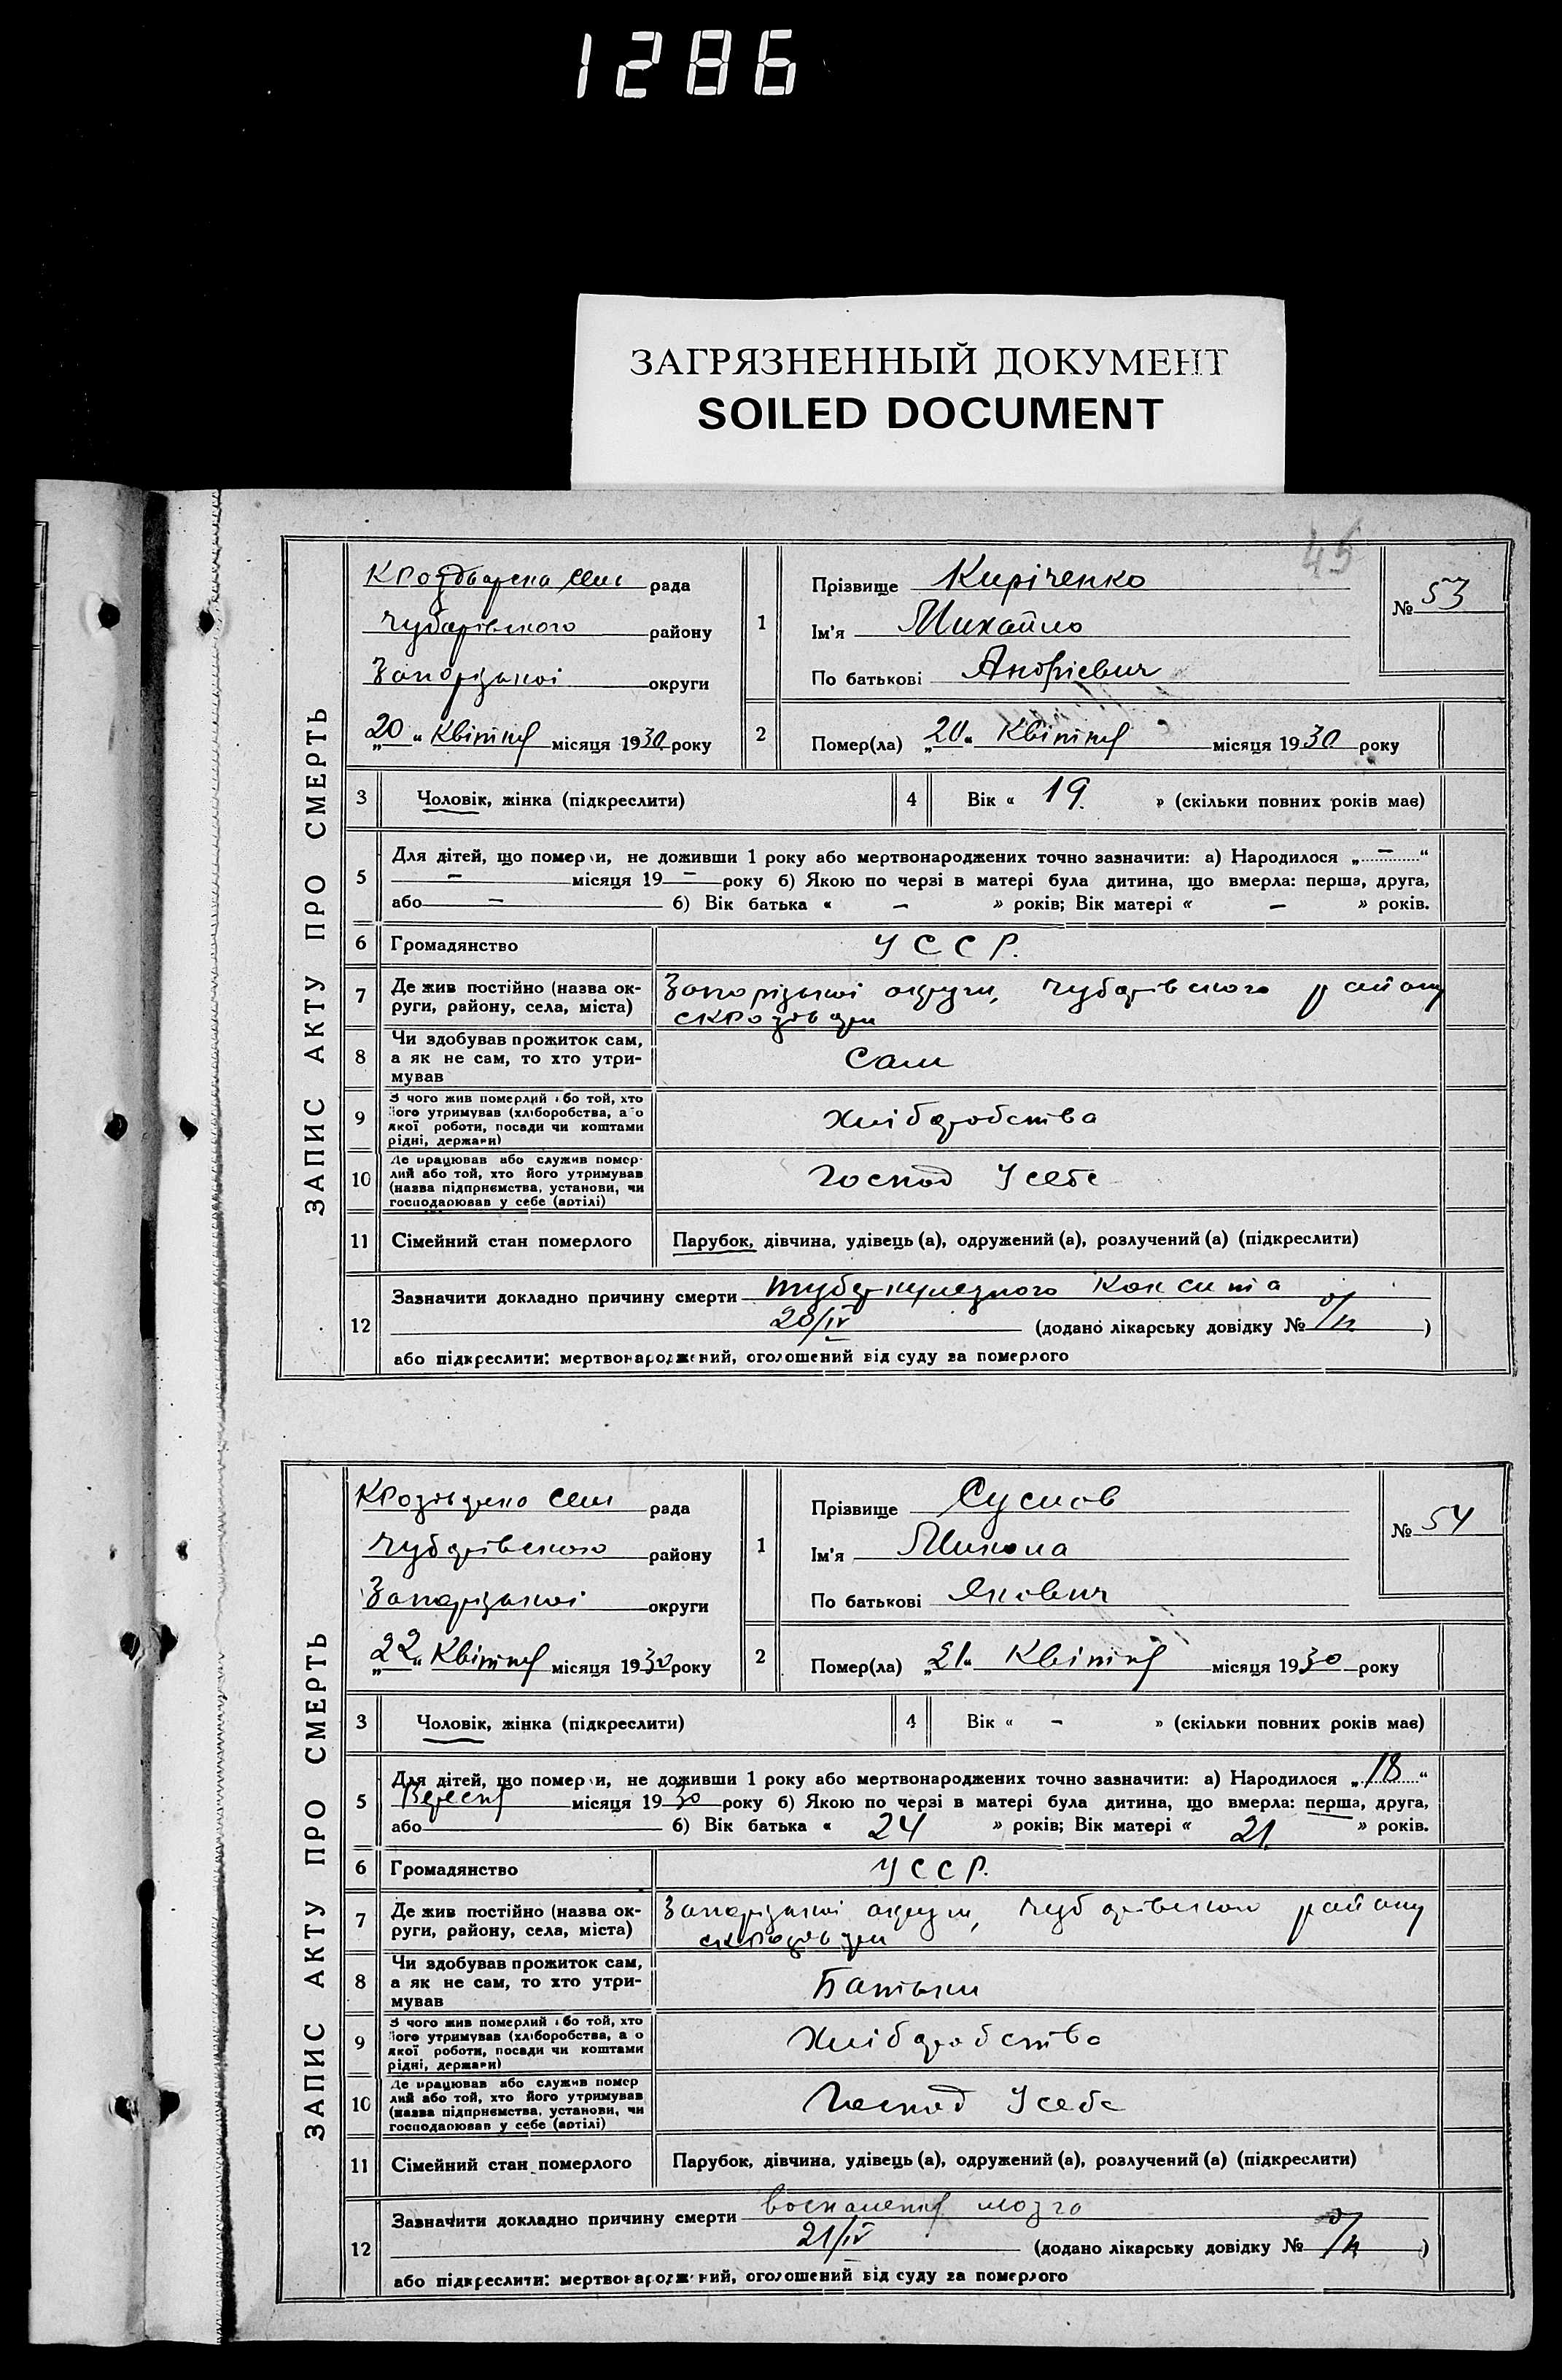 1286
ЗАГРЯЗНЕННЫЙ ДОКУМЕНТ
SOILED DOCUMENT
45
ЗАПИС АКТУ ПРО СМЕРТЬ
рада
Чубарівського району
Запорізької округи
„20“ Квітня місяця 1930 року
1
Прізвище Киріченко
Ім'я Михайло
По батькові Андрієвич
№ 53
2
Помер(ла) „20“ Квітня місяця 1930 року
3 Чоловік, жінка (підкреслити)
4 Вік « 19. » (скільки повних років має)
5 Для дітей, що померли, не доживши 1 року або мертвонароджених точно зазначити: а) Народилося „ — “
— місяця 19 — року б) Якою по черзі в матері була дитина, що вмерла: перша, друга,
або — б) Вік батька « — » років; Вік матері « — » років.
6 Громадянство УССР.
7 Де жив постійно (назва ок-
руги, району, села, міста)
Запорізької округи, Чубарівського району
8 Чи здобував прожиток сам,
а як не сам, то хто утри-
мував
Сам
9 З чого жив померлий або той, хто
його утримував (хліборобства, або
якої роботи, посади чи коштами
рідні, держави)
Хліборобства
10 Де працював або служив помер-
лий або той, хто його утримував
(назва підприємства, установи, чи
господарював у себе (артілі)
Господ У себе
11 Сімейний стан померлого Парубок, дівчина, удівець (а), одружений (а), розлучений (а) (підкреслити)
12 Зазначити докладно причину смерти туберкулезного Коксита
20/IV (додано лікарську довідку № )
або підкреслити: мертвонароджений, оголошений від суду за померлого
ЗАПИС АКТУ ПРО СМЕРТЬ
рада
Чубарівського району
Запорізької округи
„22“ Квітня місяця 1930 року
1
Прізвище Суслов
Ім'я Микола
По батькові Якович
№ 54
2
Помер(ла) „21“ Квітня місяця 1930 року
3 Чоловік, жінка (підкреслити)
4 Вік « — » (скільки повних років має)
5 Для дітей, що померли, не доживши 1 року або мертвонароджених точно зазначити: а) Народилося „18“
Вересня місяця 1930 року б) Якою по черзі в матері була дитина, що вмерла: перша, друга,
або б) Вік батька « 24 » років; Вік матері « 21. » років.
6 Громадянство УССР.
7 Де жив постійно (назва ок-
руги, району, села, міста)
Запорізької округи, Чубарівського району
8 Чи здобував прожиток сам,
а як не сам, то хто утри-
мував
Батьки
9 З чого жив померлий або той, хто
його утримував (хліборобства, або
якої роботи, посади чи коштами
рідні, держави)
Хліборобства
10 Де працював або служив помер
лий або той, хто його утримував
(назва підприємства, установи, чи
господарював у себе (артілі)
Господ У себе
11 Сімейний стан померлого Парубок, дівчина, удівець (а), одружений (а), розлучений (а) (підкреслити)
12 Зазначити докладно причину смерти воспаления мозга
21/IV (додано лікарську довідку № )
або підкреслити: мертвонароджений, оголошений від суду за померлого